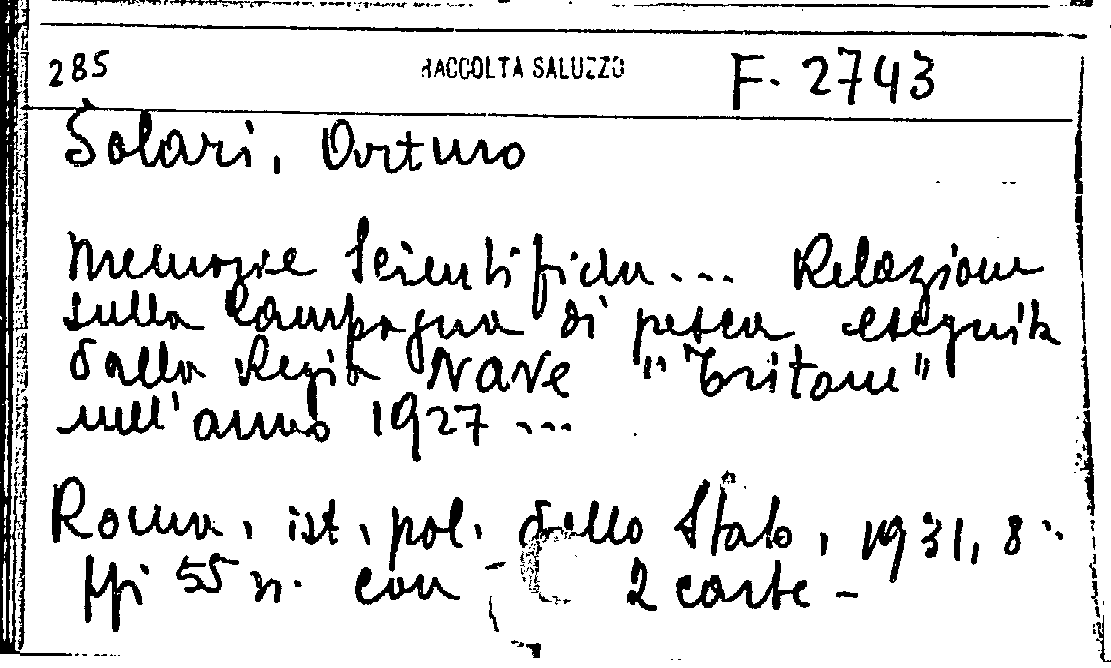 285 RACCOLTA SALUZZO F. 2743
Solari, Arturo
Memorie Scientifiche ... Relazione
sulla Campagna di pesca eseguita
dalla Regia Nave "Tritone"
nell'anno 1927 ...
Roma, ist. pol. dello Stato, 1931, 8°.
pp. 55 n. con 2 carte -